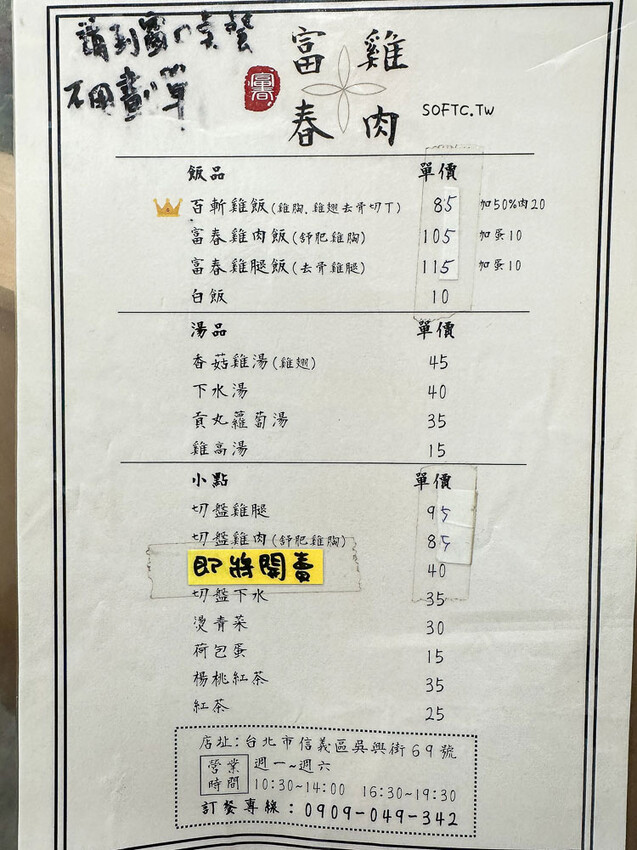 請到窗口點餐
不用畫單
富春
雞肉
富春
SOFTC.TW
飯品 單價
百斬雞飯(雞胸.雞翅去骨切丁) 85 加50%肉20
富春雞肉飯(舒肥雞胸) 105 加蛋10
富春雞腿飯(去骨雞腿) 115 加蛋10
白飯 10
湯品 單價
香菇雞湯(雞翅) 45
下水湯 40
貢丸蘿蔔湯 35
雞高湯 15
小點 單價
切盤雞腿 95
切盤雞肉(舒肥雞胸) 85
即將開賣 40
切盤下水 35
燙青菜 30
荷包蛋 15
楊桃紅茶 35
紅茶 25
店址:台北市信義區吳興街69號
營業時間 週一~週六
10:30~14:00 16:30~19:30
訂餐專線:0909-049-342